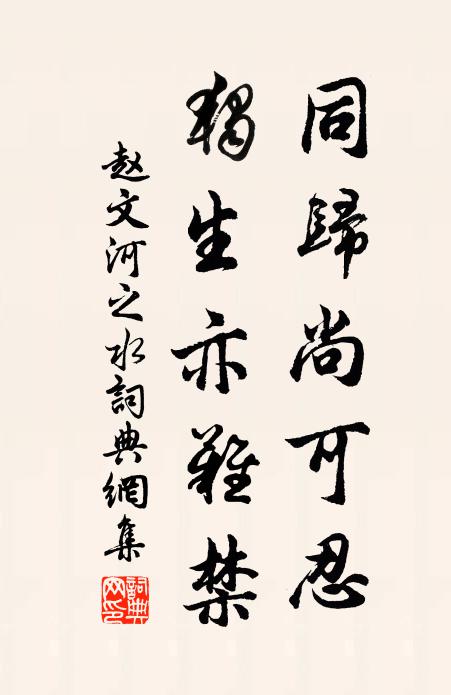 同歸尚可忍
獨生亦難禁
赵文河之水詞典網集
詞典
网印